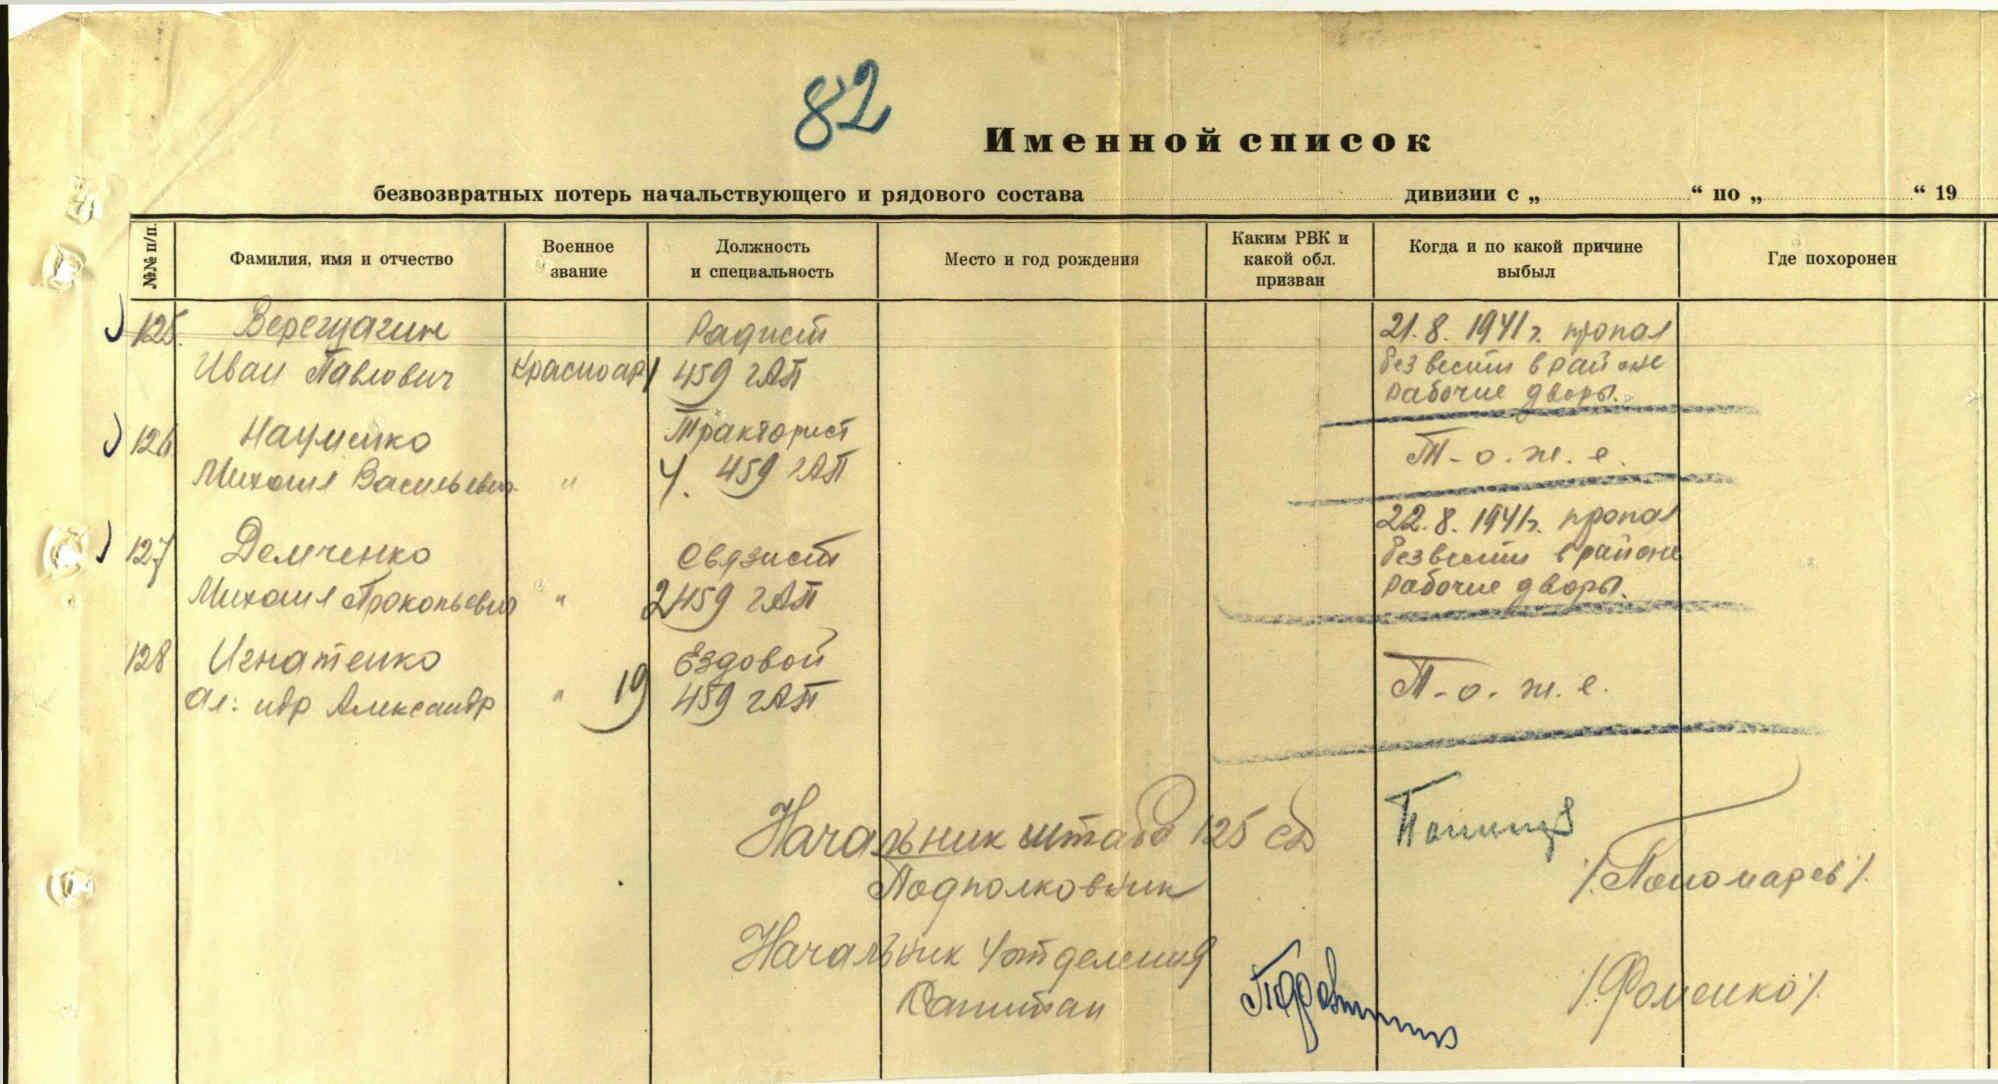 82
Именной список
безвозвратных потерь начальствующего и рядового состава дивизии с „ “ по „ “ 19
№№ п/п.
Фамилия, имя и отчество
Военное звание
Должность и специальность
Место и год рождения
Каким РВК и какой обл. призван
Когда и по какой причине выбыл
Где похоронен
125. Верещагин Радист 21.8.1941г. пропал
Иван Павлович Красноар 459 гАП без вести в районе
рабочие дворы.
126 Науменко Тракторист
Михаил Васильевич " 459 гАП Т-о.ж.е.
127 Демченко Связист 22.8.1941г. пропал
без вести в районе
Михаил Прокопьевич " 2 459 гАП рабочие дворы.
128 Игнатенко Ездовой
Ал: ндр Александр " 19 459 гАП Т-о.ж.е.
Начальник штаба 125 сд
Подполковник /Пономарев/.
Начальник 4 отделения
Капитан /Фоменко/.